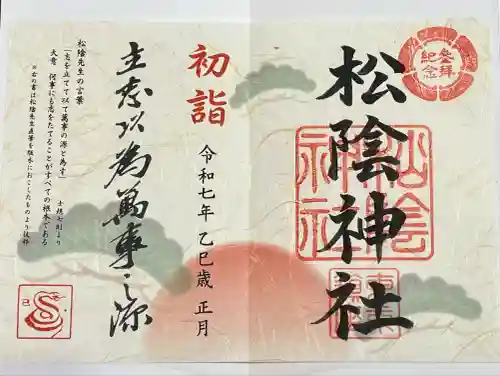 參拜
紀念
松陰神社
松陰神社
初詣
令和七年 乙巳歳 正月
立志以為萬事之源
松陰先生の言葉
「志を立てて以て萬事の源と為す」
士規七則より
大意 何事にも志をたてることがすべての根本である
※右の書は松陰先生直筆を版木におこしたものより抜粋
巳